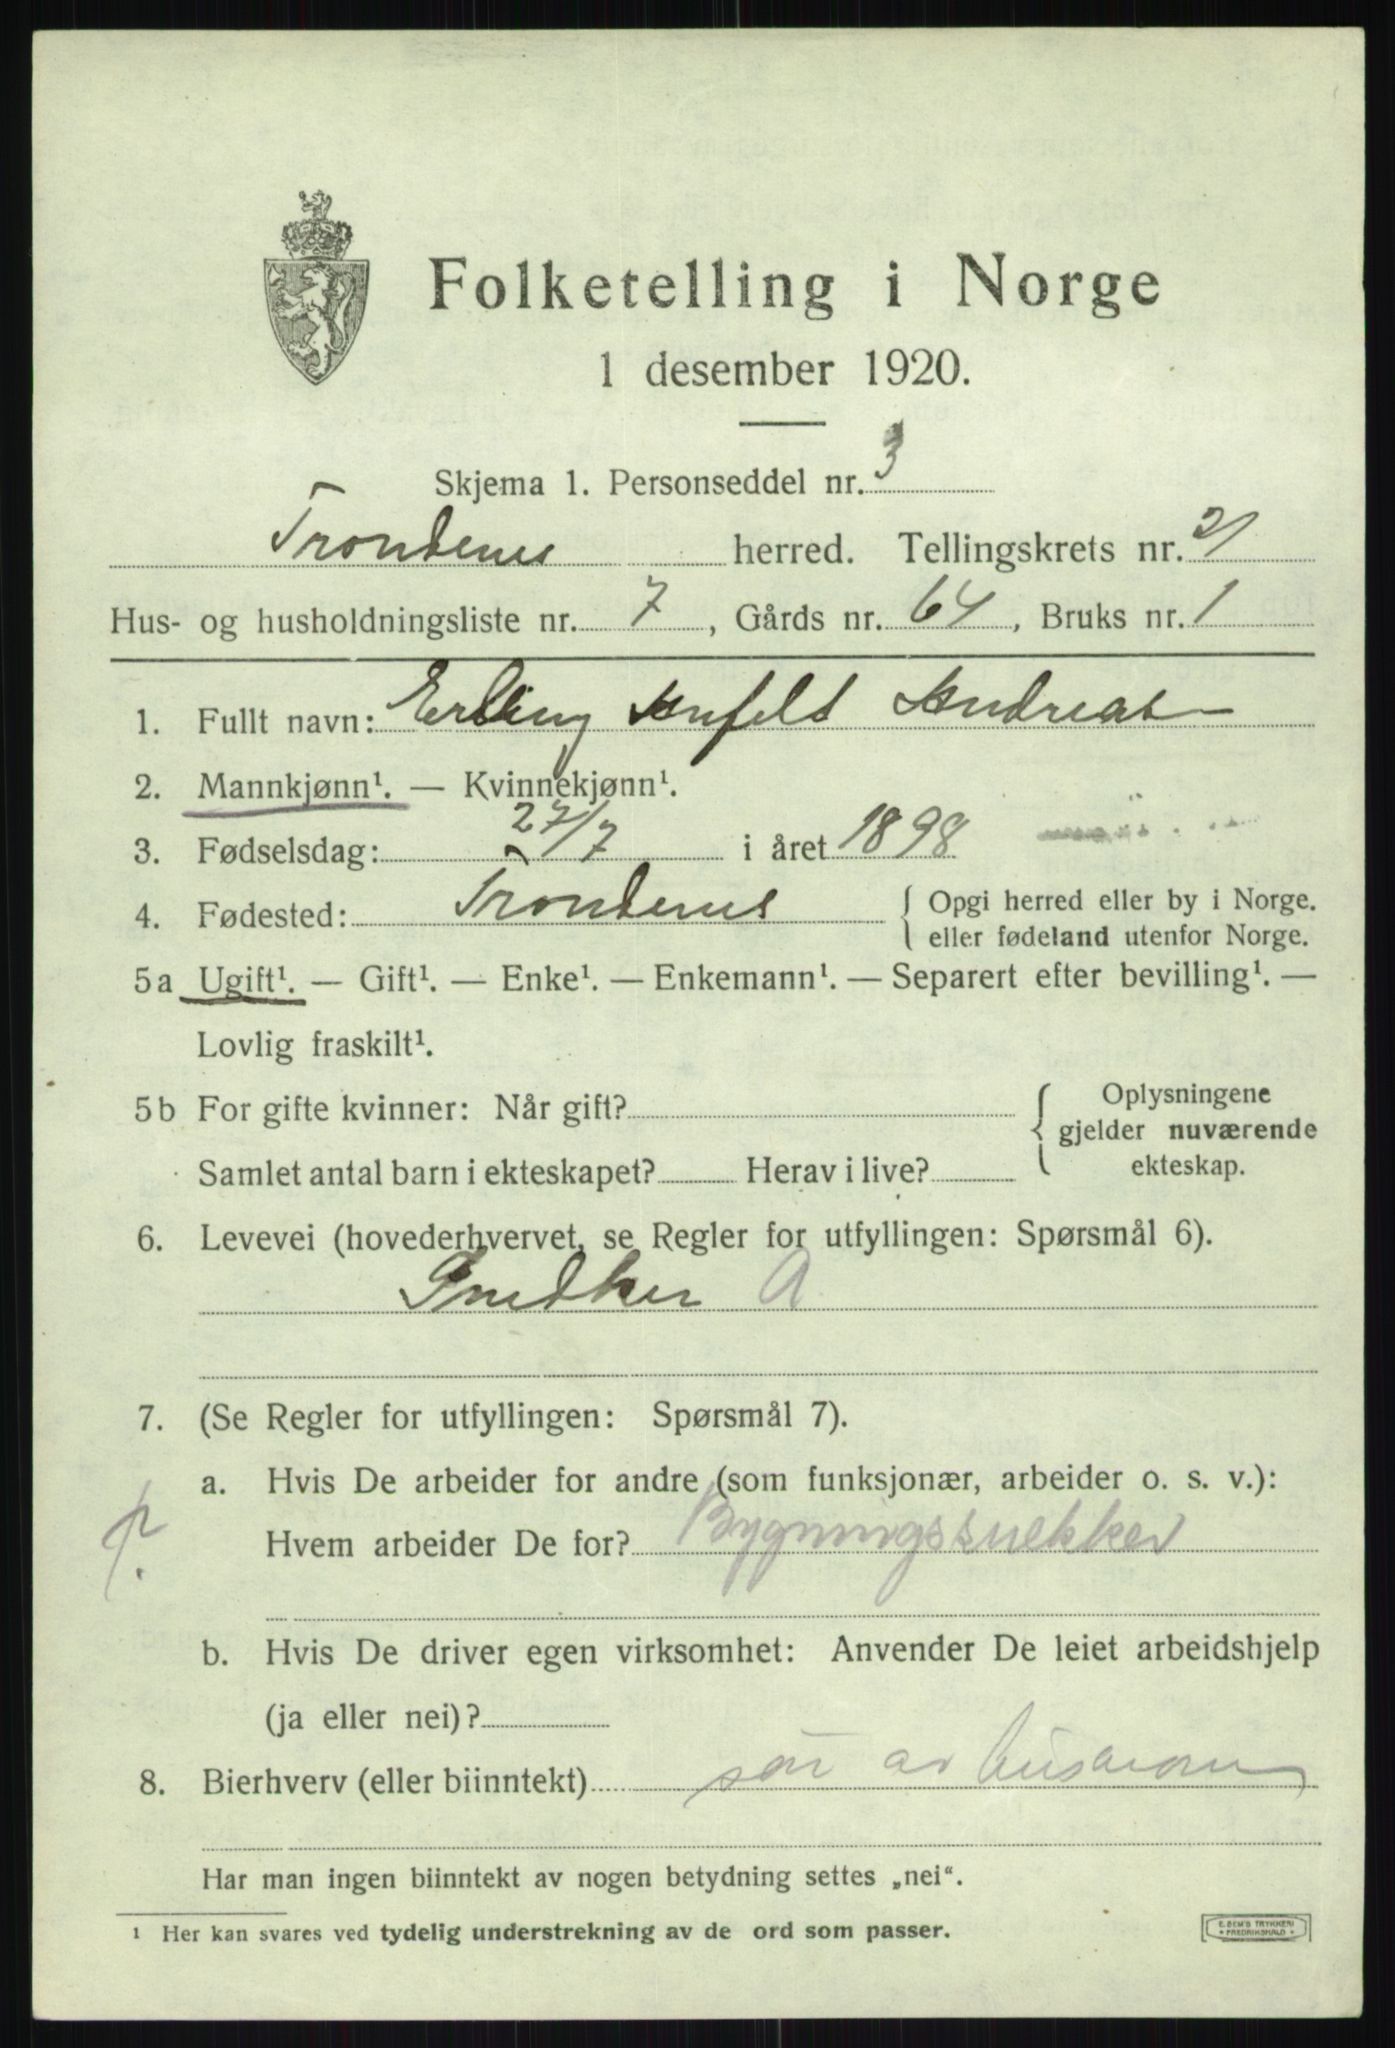 Folketelling i Norge
1 desember 1920.
Skjema 1. Personseddel nr. 3
Trondenes herred. Tellingskrets nr. 21
Hus- og husholdningsliste nr. 7, Gårds nr. 64, Bruks nr. 1
1. Fullt navn: Erling Andreas
2. Mannkjønn¹. — Kvinnekjønn¹.
3. Fødselsdag: 27/7 i året 1898
4. Fødested: Trondenes { Opgi herred eller by i Norge.
eller fødeland utenfor Norge.
5a Ugift¹. — Gift¹. — Enke¹. — Enkemann¹. — Separert efter bevilling¹. —
Lovlig fraskilt¹.
5b For gifte kvinner: Når gift? { Oplysningene
gjelder nuværende
ekteskap.
Samlet antal barn i ekteskapet? Herav i live?
6. Levevei (hovederhvervet, se Regler for utfyllingen: Spørsmål 6).
Snedker A
7. (Se Regler for utfyllingen: Spørsmål 7).
a. Hvis De arbeider for andre (som funksjonær, arbeider o. s. v.):
Hvem arbeider De for? Bygningssnekker
b. Hvis De driver egen virksomhet: Anvender De leiet arbeidshjelp
(ja eller nei)?
8. Bierhverv (eller biinntekt) sön av husmann
Har man ingen biinntekt av nogen betydning settes „nei“.
¹ Her kan svares ved tydelig understrekning av de ord som passer.
E. SEM'S TRYKKERI
• FREDRIKSHALD •